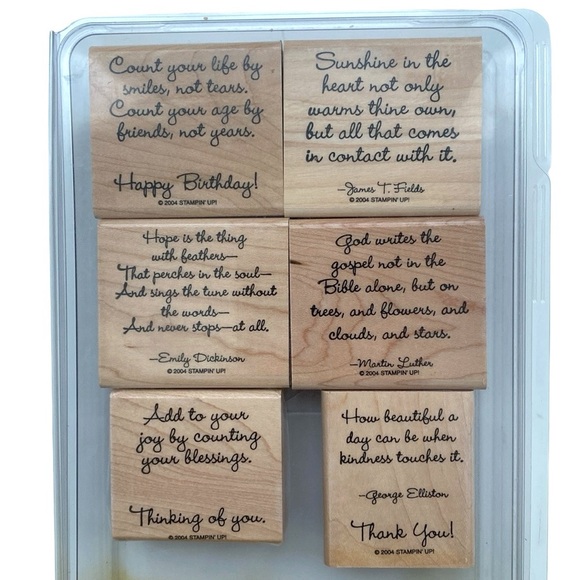 Count your life by
smiles, not tears.
Count your age by
friends, not years.
Happy Birthday!
© 2004 STAMPIN' UP!
Sunshine in the
heart not only
warms thine own,
but all that comes
in contact with it.
—James T. Fields
© 2004 STAMPIN' UP!
Hope is the thing
with feathers—
That perches in the soul—
And sings the tune without
the words—
And never stops—at all.
—Emily Dickinson
© 2004 STAMPIN' UP!
God writes the
gospel not in the
Bible alone, but on
trees, and flowers, and
clouds, and stars.
—Martin Luther
© 2004 STAMPIN' UP!
Add to your
joy by counting
your blessings.
Thinking of you.
© 2004 STAMPIN' UP!
How beautiful a
day can be when
kindness touches it.
—George Elliston
Thank You!
© 2004 STAMPIN' UP!